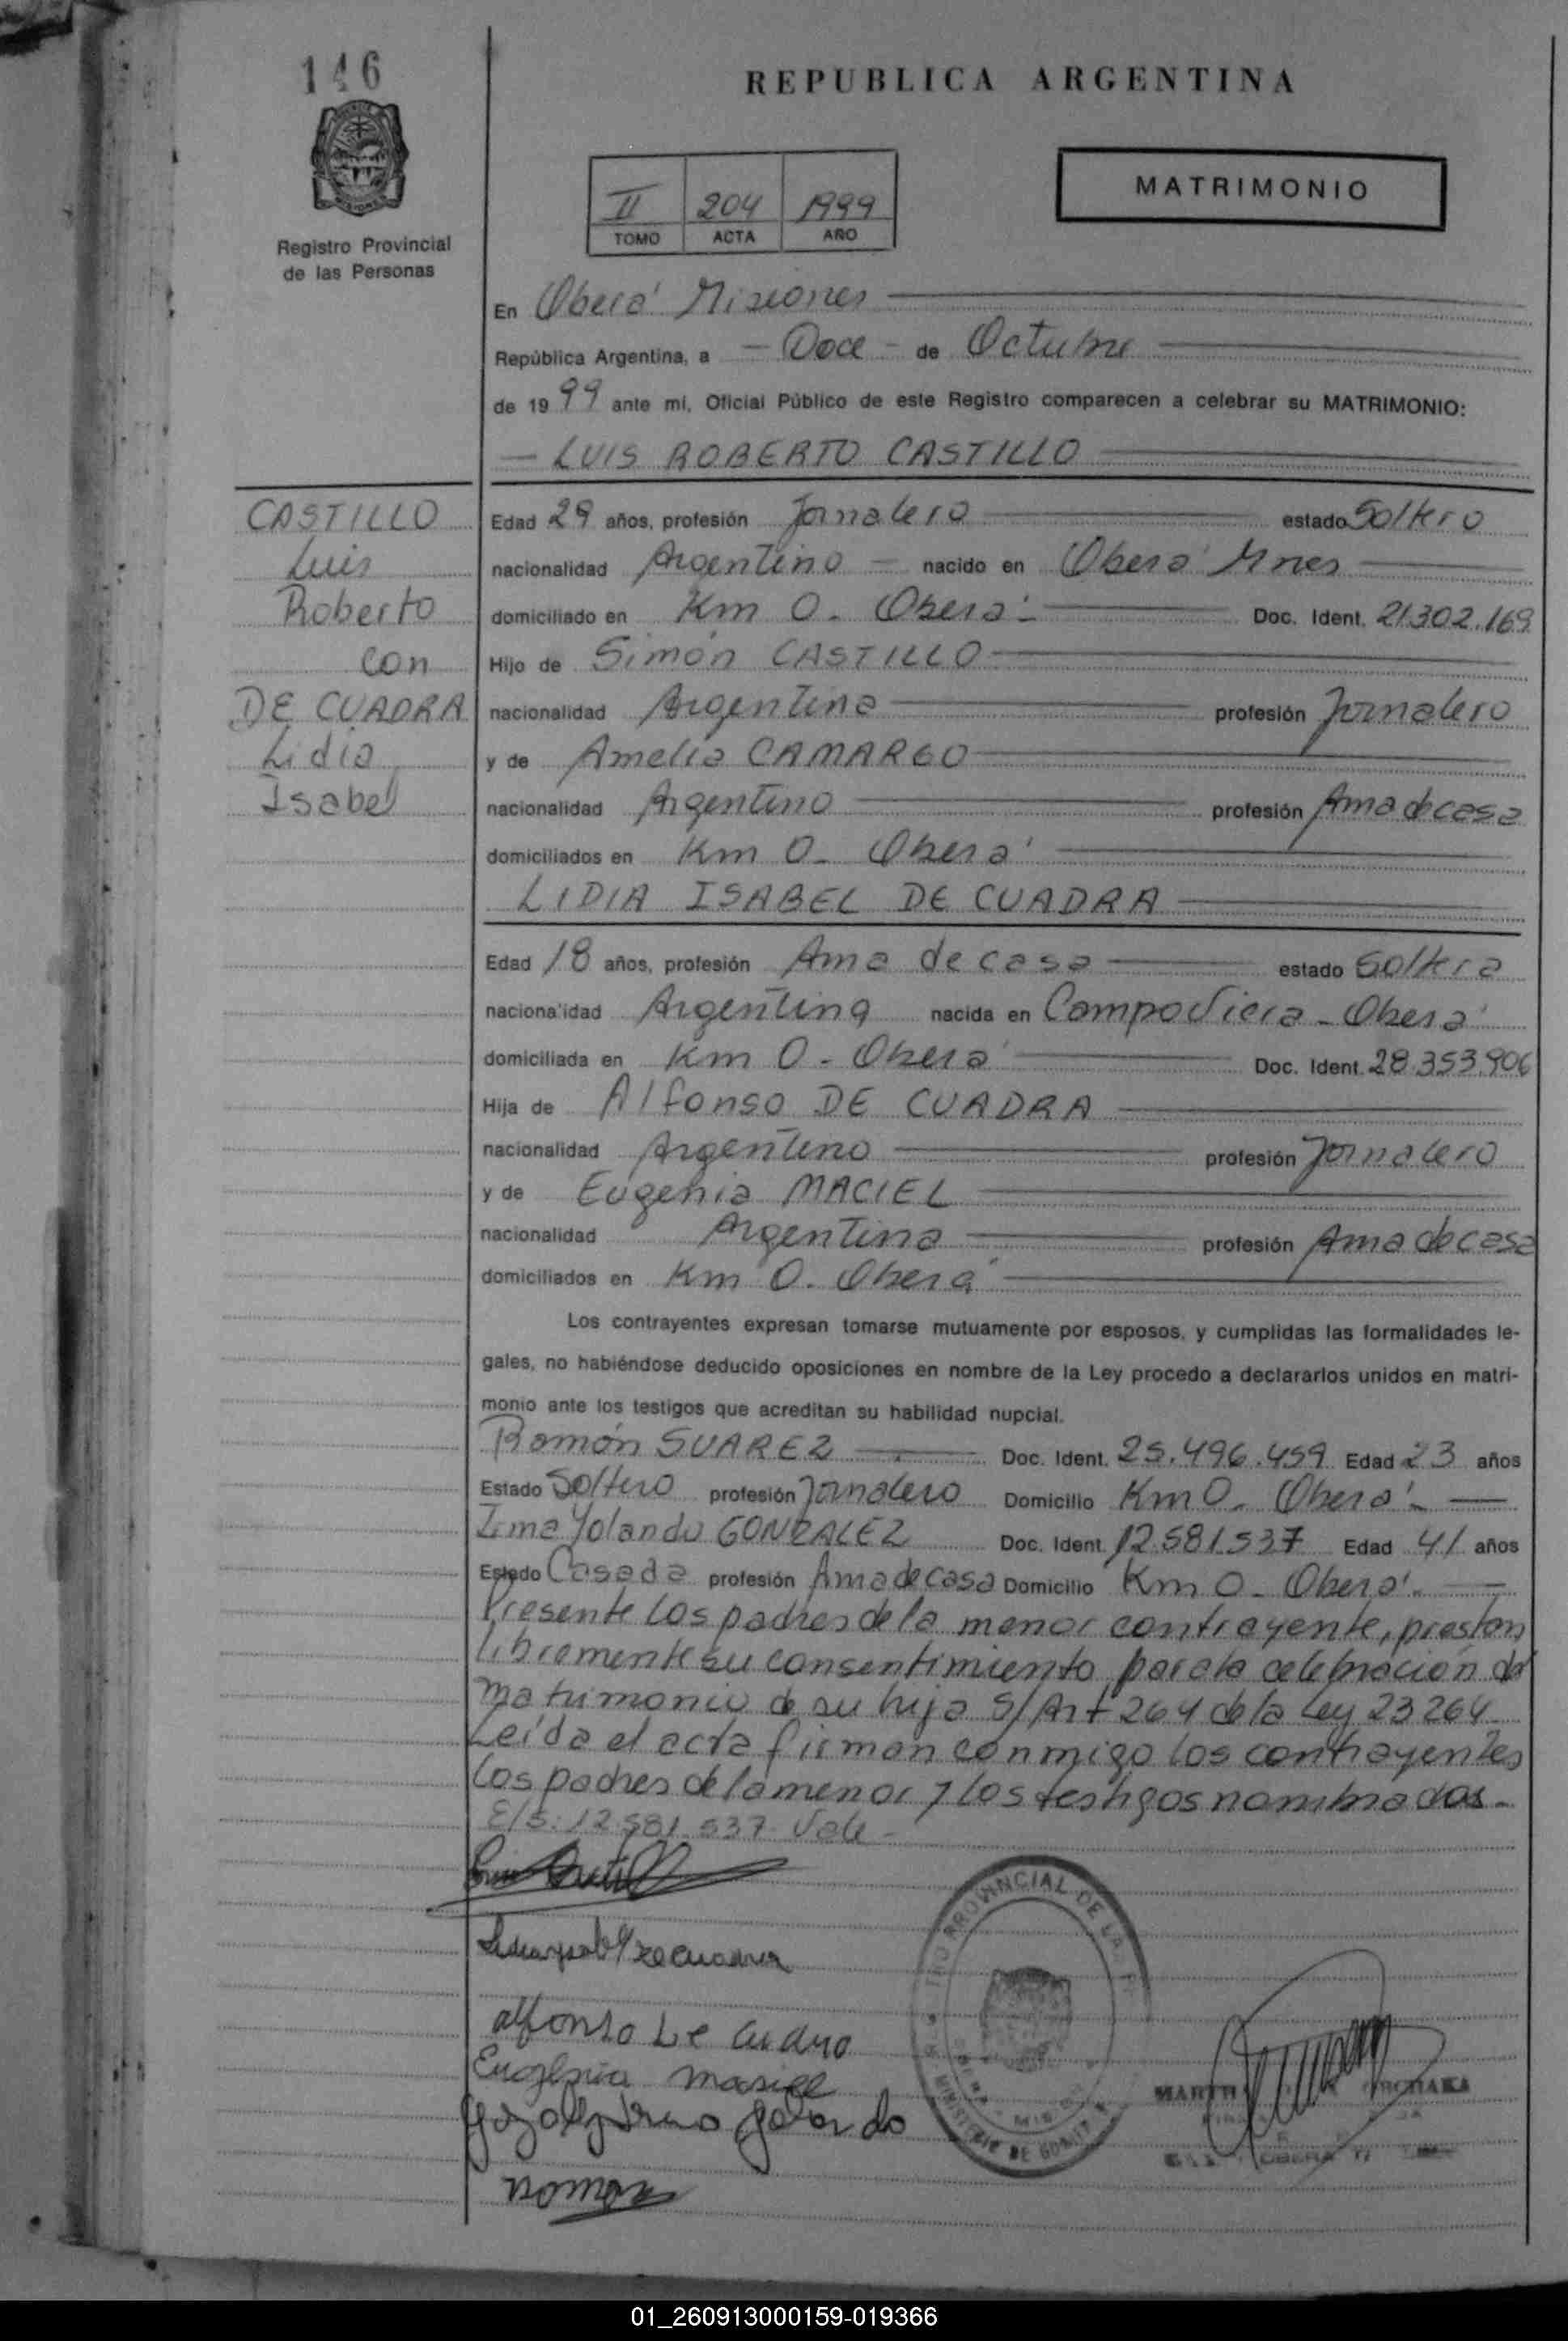 146
REPUBLICA ARGENTINA
MATRIMONIO
II 204 1999
TOMO ACTA AÑO
Registro Provincial
de las Personas
En Oberá Misiones
República Argentina, a - Doce - de Octubre
de 1999 ante mi, Oficial Público de este Registro comparecen a celebrar su MATRIMONIO:
- LUIS ROBERTO CASTILLO
CASTILLO
Luis
Roberto
con
DE CUADRA
Lidia
Isabel
Edad 29 años, profesión Jornalero estado Soltero
nacionalidad Argentino - nacido en Oberá Mnes
domiciliado en Km 0. Oberá - Doc. Ident. 21.302.169
Hijo de Simón CASTILLO
nacionalidad Argentina profesión Jornalero
y de Amelia CAMARGO
nacionalidad Argentino profesión Ama de casa
domiciliados en Km 0 - Oberá
LIDIA ISABEL DE CUADRA
Edad 18 años, profesión Ama de casa estado Soltera
nacionalidad Argentina nacida en Campo Viera - Oberá
domiciliada en Km 0 - Oberá Doc. Ident. 28.353.906
Hija de Alfonso DE CUADRA
nacionalidad Argentino profesión Jornalero
y de Eugenia MACIEL
nacionalidad Argentina profesión Ama de casa
domiciliados en Km 0. Oberá
Los contrayentes expresan tomarse mutuamente por esposos, y cumplidas las formalidades le-
gales, no habiéndose deducido oposiciones en nombre de la Ley procedo a declararlos unidos en matri-
monio ante los testigos que acreditan su habilidad nupcial.
Ramón SUAREZ Doc. Ident. 25.496.459 Edad 23 años
Estado Soltero profesión Jornalero Domicilio Km 0 - Oberá -
Irma Yolanda GONZALEZ Doc. Ident. 12.581.537 Edad 41 años
Estado Casada profesión Ama de casa Domicilio Km 0 - Oberá. -
Presente los padres de la menor contrayente, prestan
libremente su consentimiento para la celebración del
matrimonio de su hija S/Art 264 de la Ley 23264
Leída el acta firman conmigo los contrayentes
los padres de la menor y los testigos nombrados.
E/S: 12.581.537. Vale -
alfonso De Cuadra
Eugenia
Ramon
PROVINCIAL DE LAS
MINISTERIO DE
OBERA
01_260913000159-019366